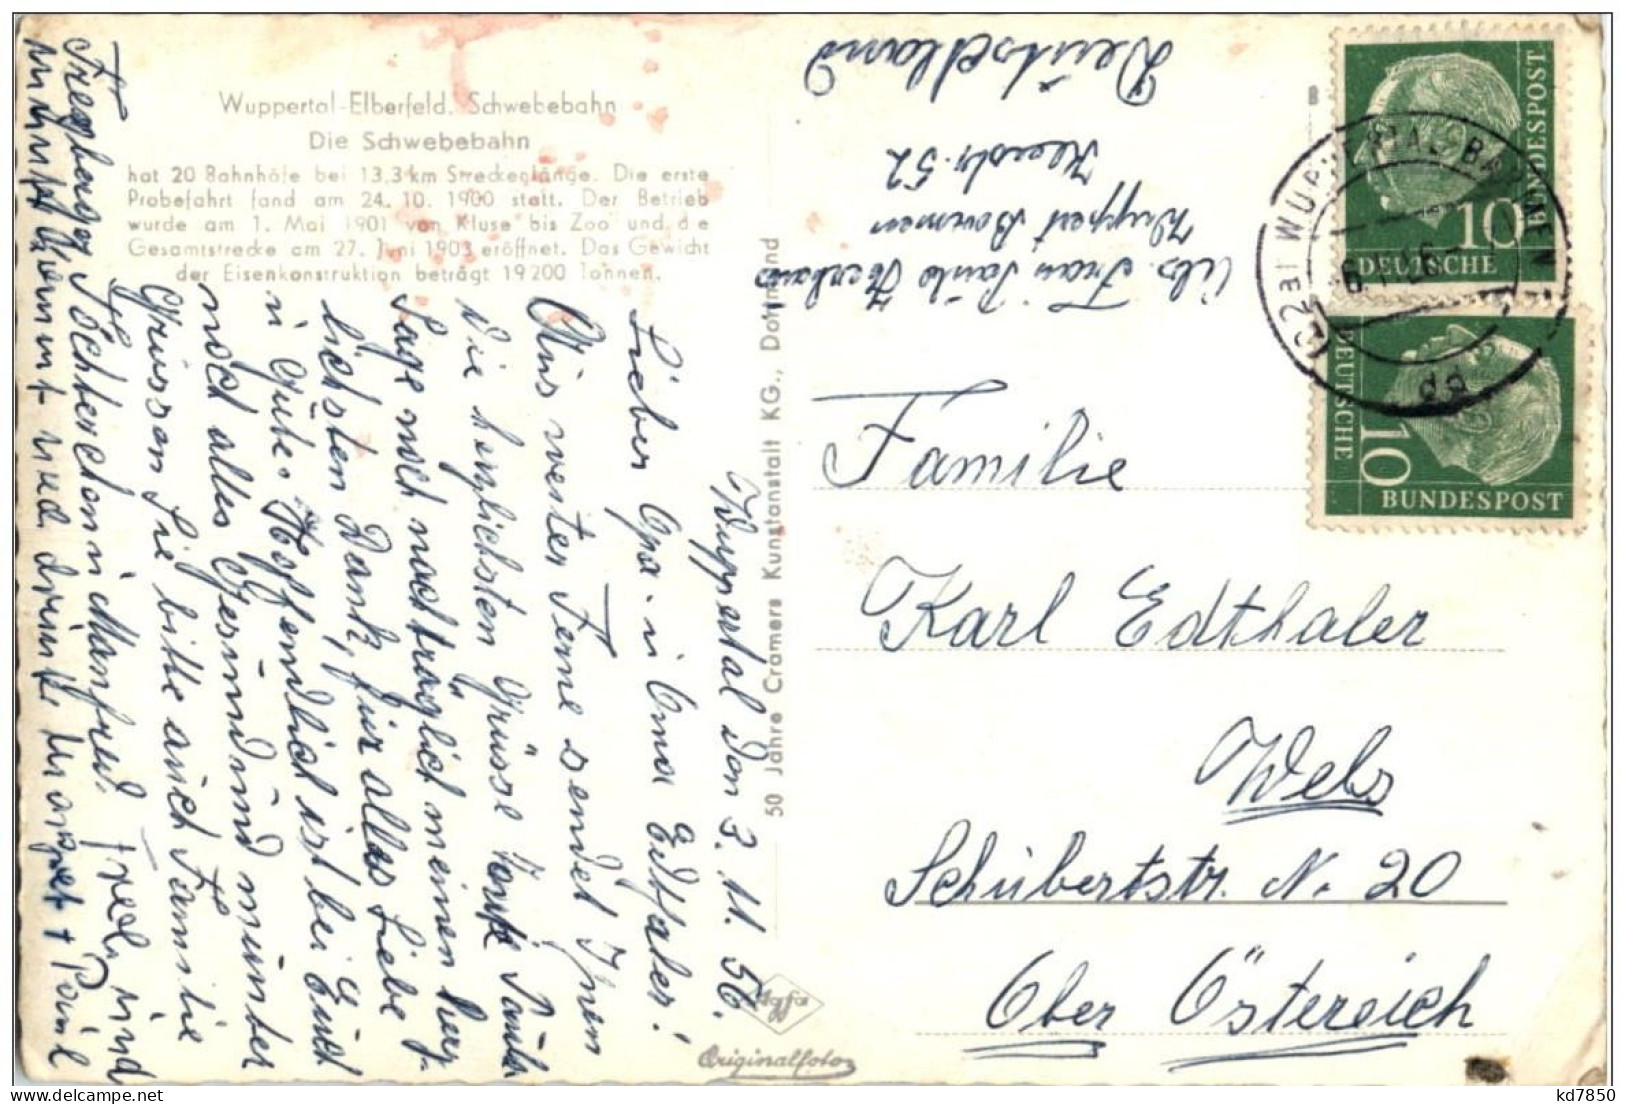 Wuppertal-Elberfeld. Schwebebahn
Die Schwebebahn
hat 20 Bahnhöfe bei 13,3 km Streckenlänge. Die erste
Probefahrt fand am 24. 10. 1900 statt. Der Betrieb
wurde am 1. Mai 1901 von Kluse bis Zoo und die
Gesamtstrecke am 27. Juni 1903 eröffnet. Das Gewicht
der Eisenkonstruktion beträgt 19200 Tonnen.
Wuppertal den 3. 11. 56.
Lieber Opa u Oma Edthaler!
Aus weiter Ferne sendet Ihnen
die herzlichsten Grüsse Tante
Sage noch nachträglich meinen herz-
lichsten Dank, für alles Liebe
u Gute. Hoffendlich ist bei Euch
noch alles Gesund und munter
Grüssen Sie bitte auch Familie
Töchterchen u Manfred. und
50 Jahre Cramers Kunstanstalt KG., Dortmund
Agfa
Originalfoto
Abs. Frau
Wuppert Barmen
52
Deutschland
Familie
Karl Edthaler
Wels
Schubertstr. N. 20
Ober Österreich
10
DEUTSCHE
BUNDESPOST
10
DEUTSCHE
BUNDESPOST
(22a) WUPPERTAL-BARMEN
dd
kd7850